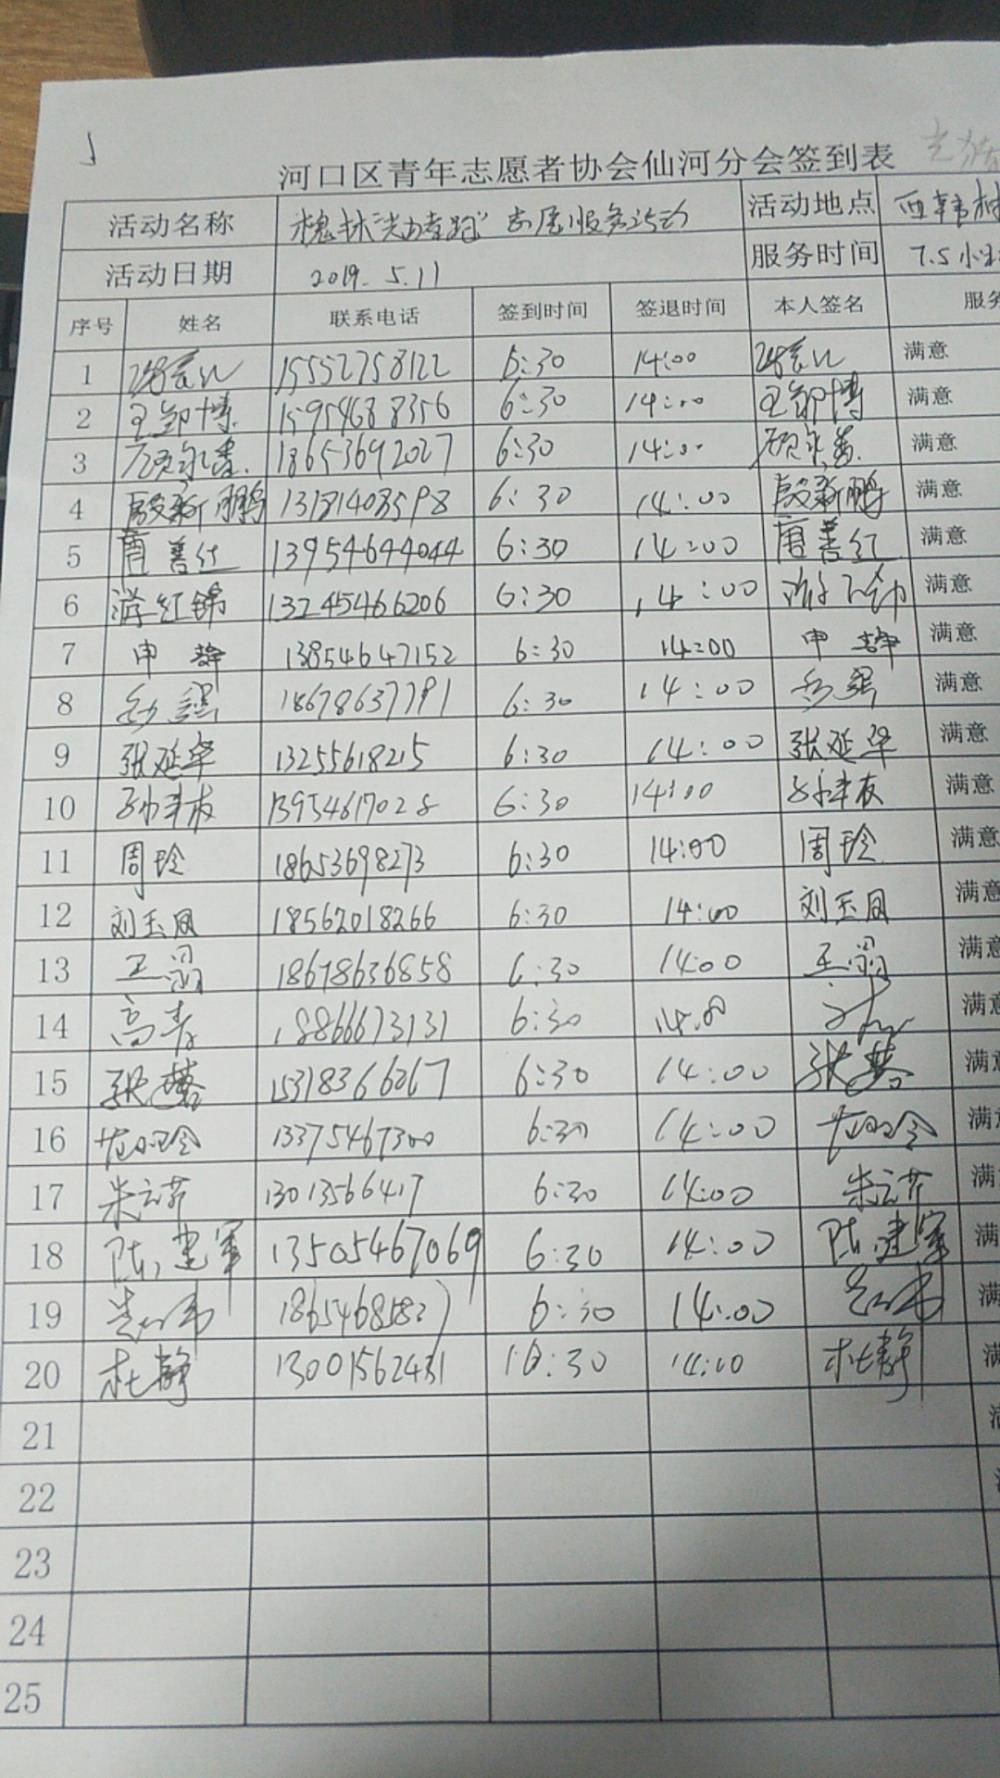 河口区青年志愿者协会仙河分会签到表
活动名称 槐林 志愿服务活动 活动地点 西韩村
活动日期 2019.5.11 服务时间 7.5小
序号 姓名 联系电话 签到时间 签退时间 本人签名 服务
1 15552758122 6:30 14:00 满意
2 王邹博 15954688356 6:30 14:00 王邹博 满意
3 顾永贵 18653692027 6:30 14:00 顾永贵 满意
4 殷新鹏 13181403598 6:30 14:00 殷新鹏 满意
5 唐善红 13954644044 6:30 14:00 唐善红 满意
6 游红锦 13245466206 6:30 14:00 满意
7 申静 13854647152 6:30 14:00 申静 满意
8 18678637791 6:30 14:00 满意
9 张延华 13255618215 6:30 14:00 张延华 满意
10 孙丰友 13954617028 6:30 14:00 孙丰友 满意
11 周玲 18653698273 6:30 14:00 周玲 满意
12 刘玉凤 18562018266 6:30 14:00 刘玉凤 满意
13 王 18678636858 6:30 14:00 王 满意
14 高青 18866673131 6:30 14:00 满意
15 张慧 15318366267 6:30 14:00 张慧 满意
16 13375467300 6:30 14:00 满
17 朱云芹 13013566417 6:30 14:00 朱云芹 满
18 陈建军 13505467069 6:30 14:00 陈建军 满
19 6:30 14:00 满
20 杜静 13001562431 6:30 14:00 杜静 满
21 满
22
23
24
25